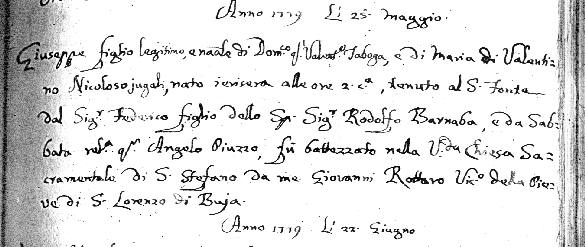 (Anno 1779 Li 25. Maggio.
Giuseppe figlio legitimo, e naale di Domco qm Taboga, e di Maria di Valenti=
no Nicoloso jugali, nato jerisera alle ore 2. ca, tenuto al S. Fonte
dal Sigr Federico figlio dello Sp. Sigr Rodolfo Barnaba, e da Sab=
bata relta qm Angelo Piuzzo, fù battezzato nella Vda Chiesa Sa=
cramentale di S. Stefano da me Giovanni Rottaro Vico della Pie=
ve di S. Lorenzo di Buja.
(Anno 1779 Li 22. Giugno